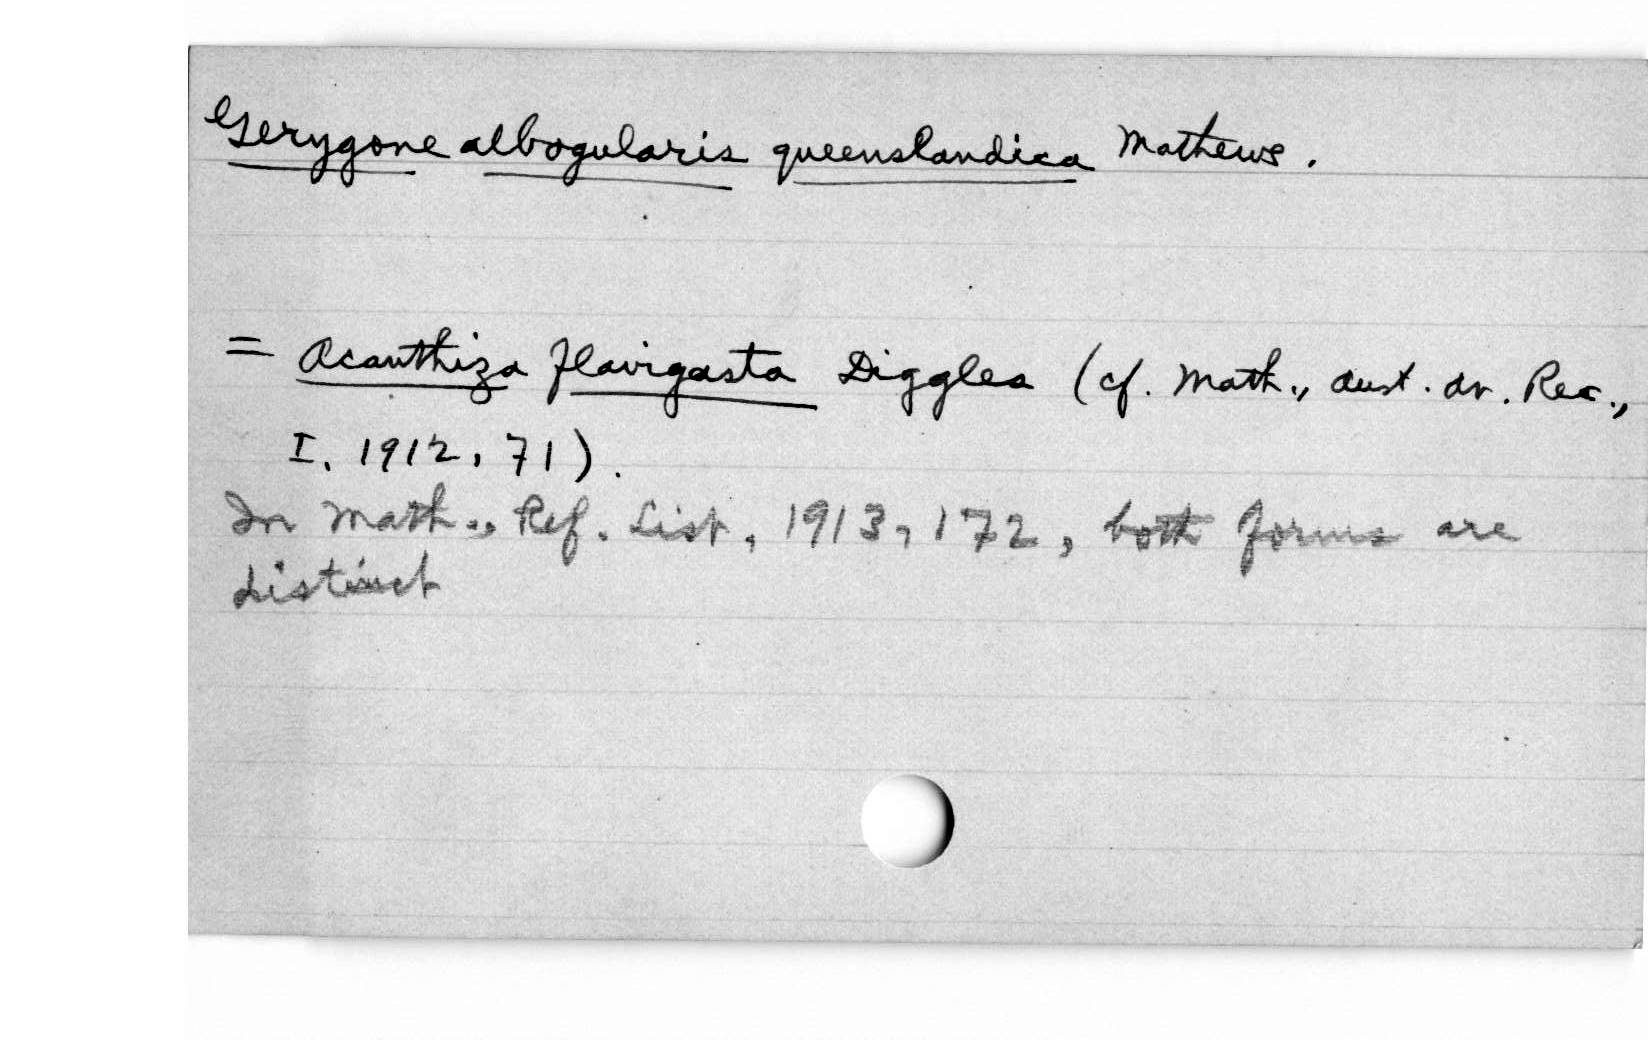 Gerygone albogularis queenslandica Mathews.
= Acanthiza flavigasta Diggles (cf. Math., Aust. Av. Rec.,
I, 1912, 71).
In Math., Ref. List, 1913, 172, both forms are
distinct